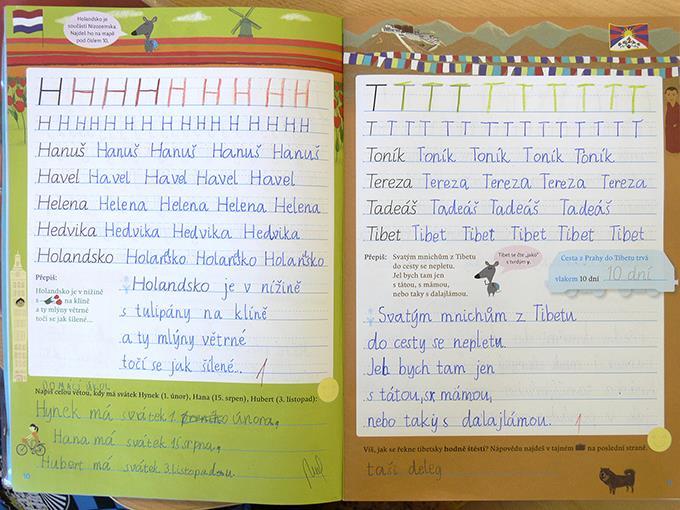 Holandsko je
součástí Nizozemska.
Najdeš ho na mapě
pod číslem 10.
H H H H H H H H H H
H H H H H H H H H H H H H H
Hanuš Hanuš Hanuš Hanuš Hanuš
Havel Havel Havel Havel Havel
Helena Helena Helena Helena Helena
Hedvika Hedvika Hedvika Hedvika
Holandsko Holandsko Holandsko Holandsko
Přepiš:
Holandsko je v nížině
s na klíně
a ty mlýny větrné
točí se jak šílené…
Holandsko je v nížině
s tulipány na klíně
a ty mlýny větrné
točí se jak šílené.. 1
DOMÁCÍ ÚKOL
Napiš celou větou, kdy má svátek Hynek (1. únor), Hana (15. srpen), Hubert (3. listopad):
Hynek má svátek 1. února.
Hana má svátek 15. srpna.
Hubert má svátek 3. listopadu.
10
T T T T T T T T T T
T T T T T T T T T T T T T
Toník Toník Toník Toník Toník
Tereza Tereza Tereza Tereza Tereza
Tadeáš Tadeáš Tadeáš Tadeáš
Tibet Tibet Tibet Tibet Tibet Tibet
Přepiš:
Svatým mnichům z Tibetu
do cesty se nepletu.
Jel bych tam jen
s tátou, s mámou,
nebo taky s dalajlámou.
Tibet se čte „jako"
s tvrdým y.
Cesta z Prahy do Tibetu trvá
vlakem 10 dní 10 dní
Svatým mnichům z Tibetu
do cesty se nepletu.
Jel bych tam jen
s tátou, s mámou,
nebo taky s dalajlámou. 1
Víš, jak se řekne tibetsky hodně štěstí? Nápovědu najdeš v tajném na poslední straně.
taši deleg